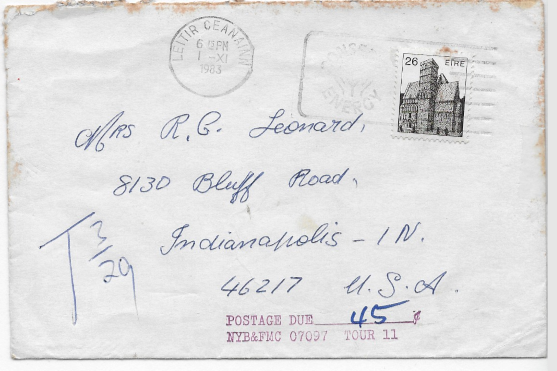 LEITIR CEANAINN
6 PM
1 - XI
1983
CONSERVE
ENERGY
26 ÉIRE
Mrs R. G. Leonard,
8130 Bluff Road,
Indianapolis - IN.
46217 U.S.A.
T 3/29
POSTAGE DUE 45 ¢
NYB&FMC 07097 TOUR 11